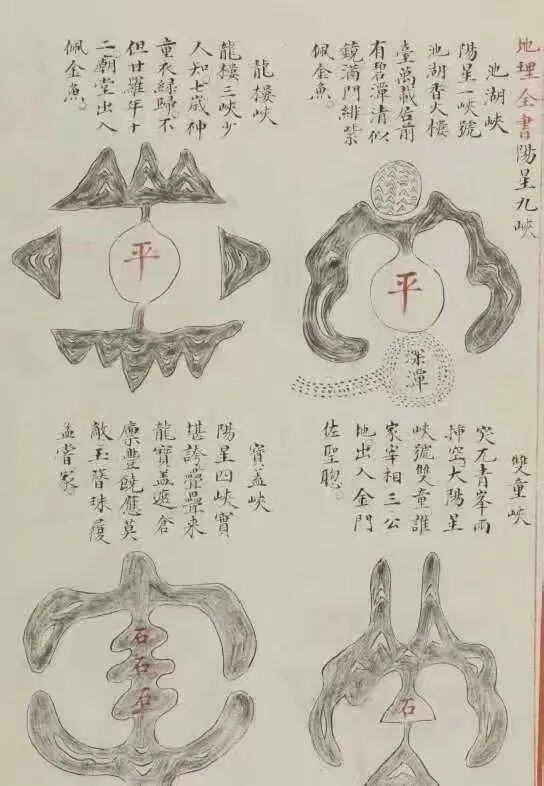 地理全書陽星九峽
池湖峽
陽星一峽號
池湖香火樓
臺萬載居前
有碧潭清似
鏡滿門緋紫
佩金魚。
平
深潭
龍樓峽
龍樓三峽少
人知。七歲神
童衣綠歸。不
但甘羅年十
二。廟堂出入
佩金魚。
平
雙童峽
突兀青峯兩
插空。大陽星
峽號雙童誰
家宰相三公
地。出入金門
佐聖聰。
石
寶蓋峽
陽星四峽實
堪誇疊疊來
龍寶蓋遮倉
廩豐饒應莫
敵玉簪珠履
孟嘗家。
石
石
平